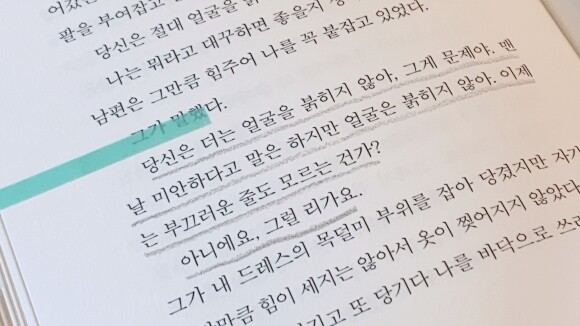 팔을 부여잡고
당신은 절대 얼굴을 붉
나는 뭐라고 대꾸하면 좋을지
남편은 그만큼 힘주어 나를 꼭 붙잡고 있었다.
그가 말했다.
당신은 더는 얼굴을 붉히지 않아, 그게 문제야. 맨
날 미안하다고 말은 하지만 얼굴은 붉히지 않아. 이제
는 부끄러운 줄도 모르는 건가?
아니에요, 그럴 리가요.
그가 내 드레스의 목덜미 부위를 잡아 당겼지만 자기
만큼 힘이 세지는 않아서 옷이 찢어지지 않았다
또 당기다 나를 바닥으로